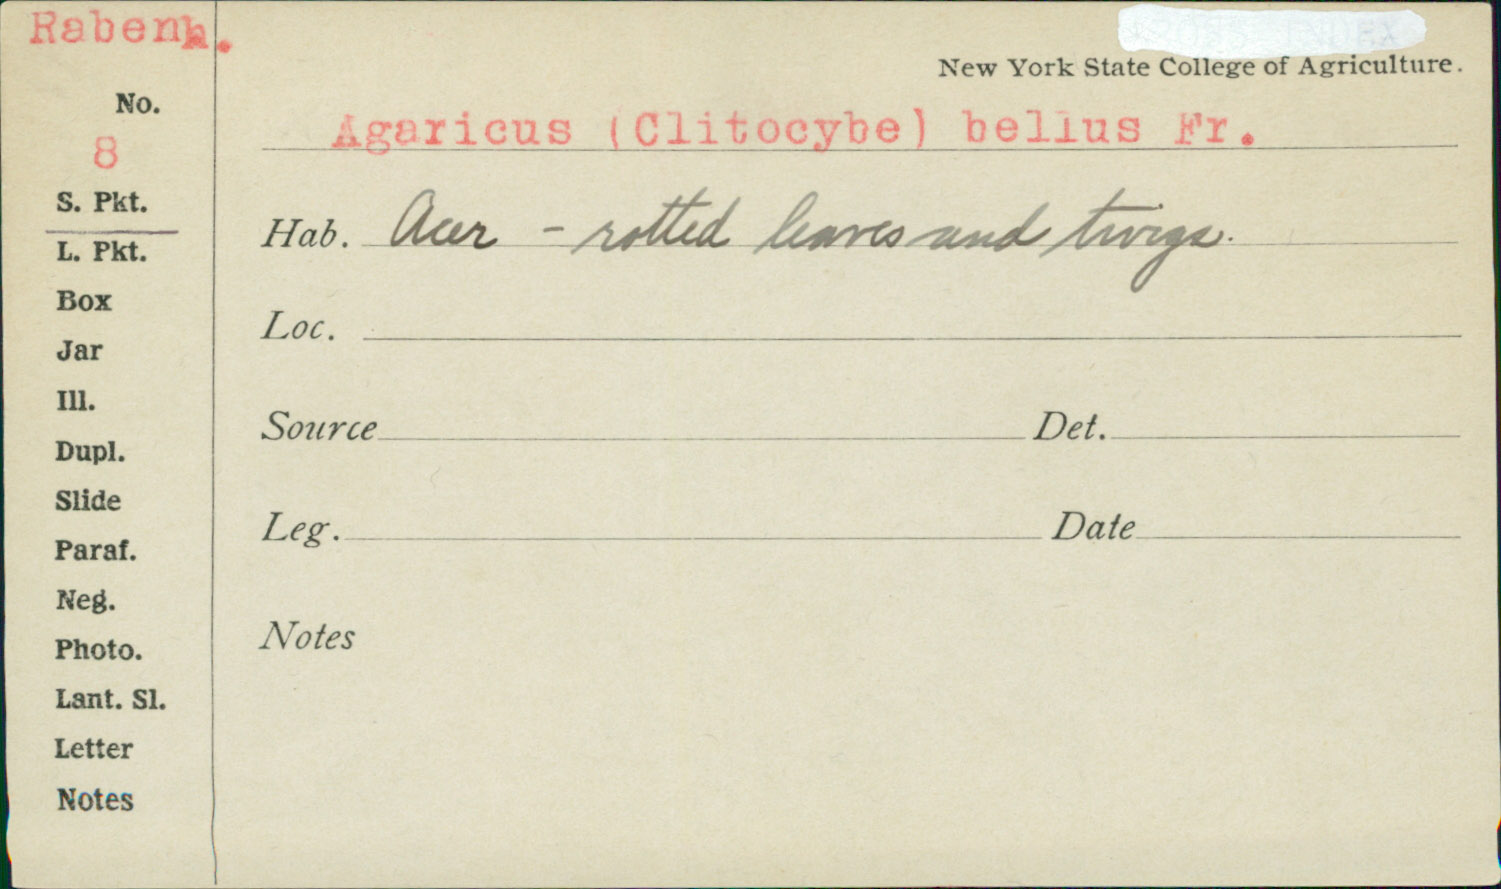 Rabenh.
New York State College of Agriculture.
No.
8
Agaricus (Clitocybe) bellus Fr.
S. Pkt.
Hab. Acer - rotted leaves and twigs.
L. Pkt.
Box
Loc.
Jar
Ill.
Source Det.
Dupl.
Slide
Leg. Date
Paraf.
Neg.
Notes
Photo.
Lant. Sl.
Letter
Notes